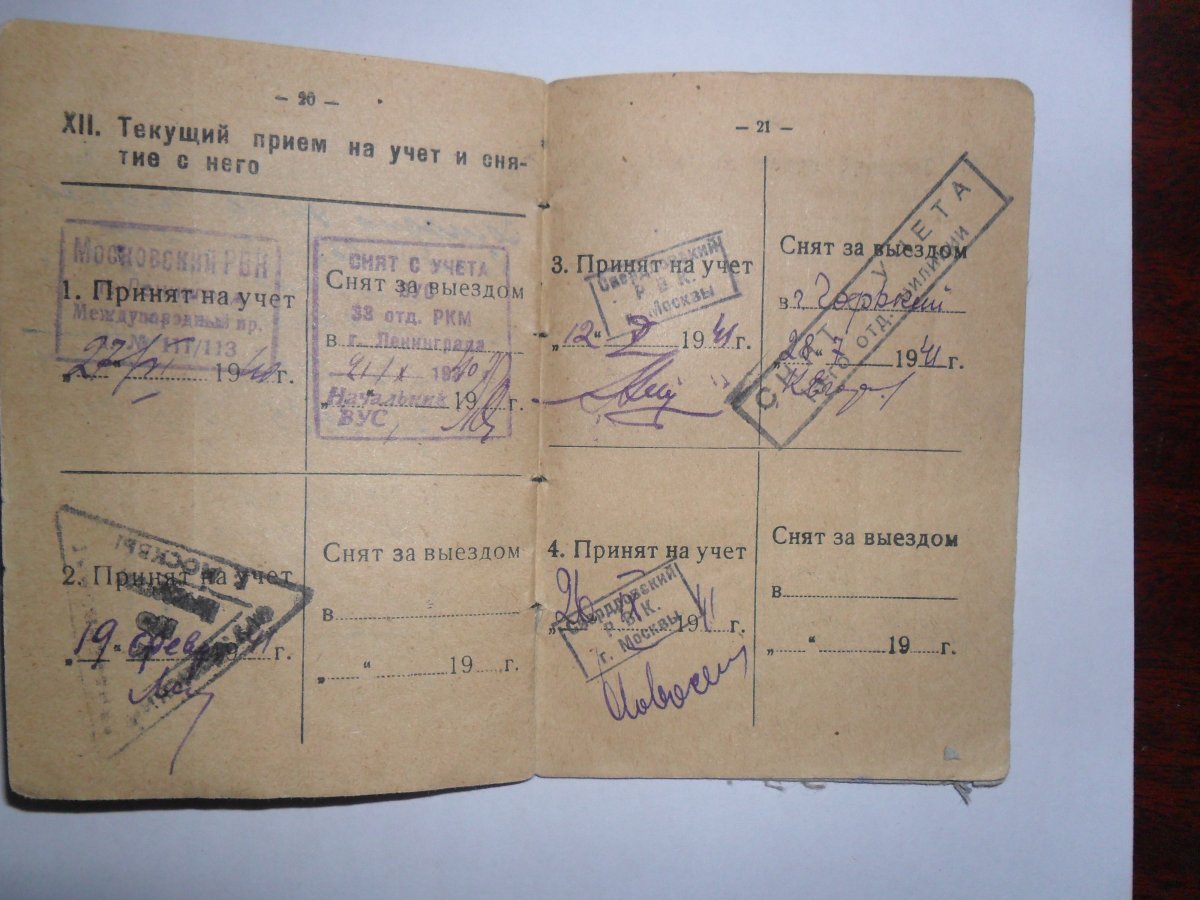 — 20 —
XII. Текущий прием на учет и сня-
тие с него
Московский РВК
1. Принят на учет
Международный пр.
№ 111/113
„27“ VI 1940г.
СНЯТ С УЧЕТА
Снят за выездом
ВУС
33 отд. РКМ
в г. Ленинграда
21/X 1940
„ “ 19 г.
Начальник
ВУС
2. Принят на учет
МОСКВЫ
„19“ февр 1941г.
Снят за выездом
в
„ “ 19 г.
— 21 —
3. Принят на учет
Свердловский
Р. В. К.
г. Москвы
„12“ 1941г.
Снят за выездом
в г. Горький
„28“ 7 1941г.
СНЯТ С УЧЕТА
4. Принят на учет
Свердловский
Р. В. К.
г. Москвы
„26“ 1941 г.
Снят за выездом
в
„ “ 19 г.